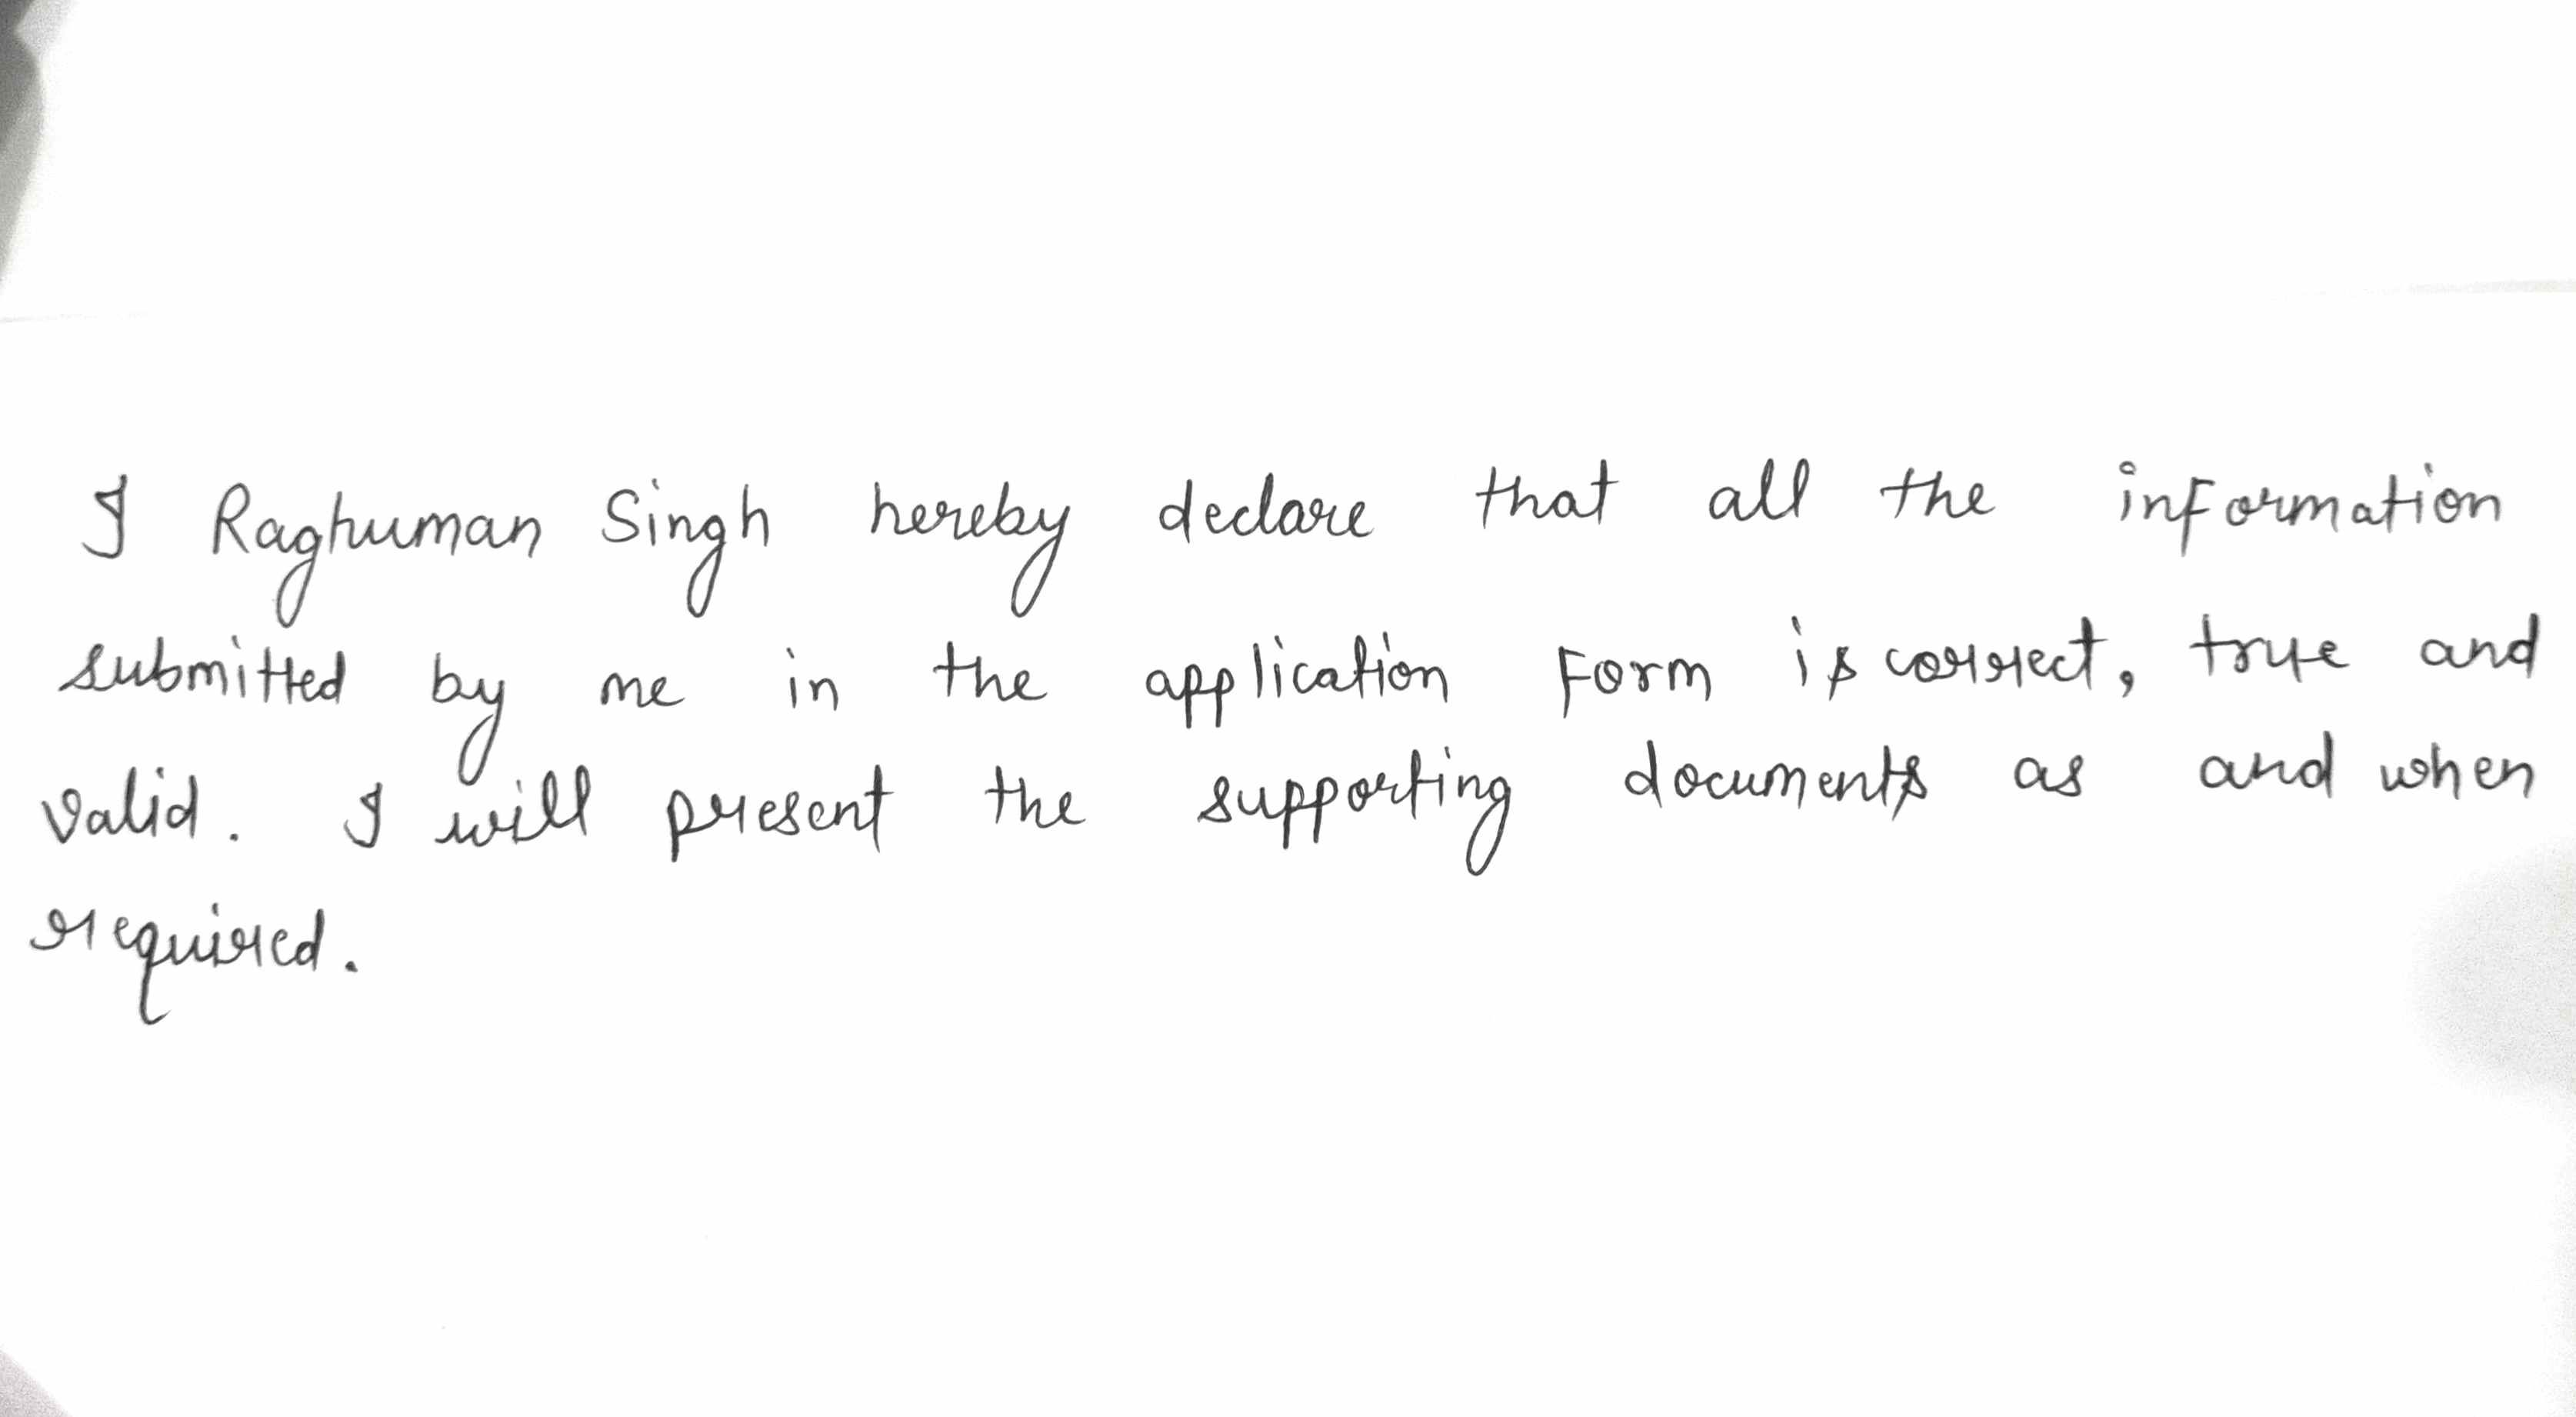 I Raghuman Singh hereby declare that all the information
submitted by me in the application Form is correct, true and
valid. I will present the supporting documents as and when
required.